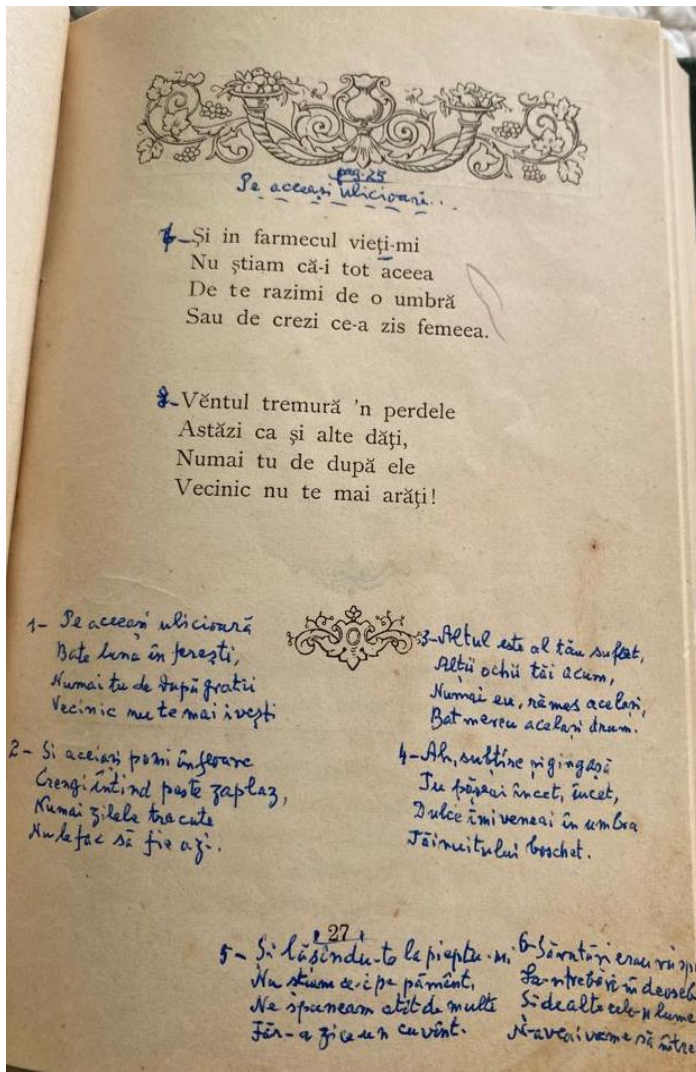 pag. 25
Pe aceeași ulicioară...
7- Și in farmecul vieți-mi
Nu știam că-i tot aceea
De te razimi de o umbră
Sau de crezi ce-a zis femeea.
8- Vĕntul tremură 'n perdele
Astăzi ca și alte dăți,
Numai tu de după ele
Vecinic nu te mai arăți!
1- Pe aceeași ulicioară
Bate luna în ferești,
Numai tu de după gratii
Vecinic nu te mai ivești
2- Și aceiași pomi în floare
Crengi întind peste zaplaz,
Numai zilele trecute
Nu le fac să fie azi.
3- Altul este al tău suflet,
Alții ochii tăi acum,
Numai eu, rămas același,
Bat mereu același drum.
4- Ah, subțire și gingașă
Tu pășeai încet, încet,
Dulce îmi veneai în umbra
Tăinuitului boschet.
27
5- Și lăsîndu-te la pieptu-mi
Nu știam ce-i pe pămînt,
Ne spuneam atît de multe
Făr-a zice un cuvînt.
6- Sărutări erau
La-ntrebări în
Și de alte cele-n lume
N-aveai vreme să